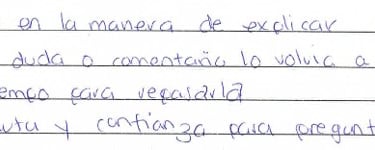 en la manera de explicar
duda o comentario lo volvia a
para repasarla
y confianza para pregunt